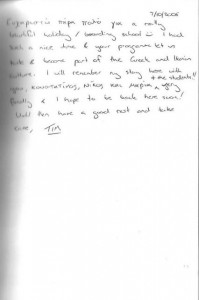 7/10/2008
Ευχαριστώ πάρα πολύ for a really
beautiful holiday / boarding school ☺ I had
such a nice time & your programme let us
taste & become part of the Greek and Ikarian
culture. I will remember my stay here with
& the students!!
you, Κωνσταντίνος, Νίκος και Μαρία a very
fondly & I hope to be back here soon!
Until then have a good rest and take
care, TIM